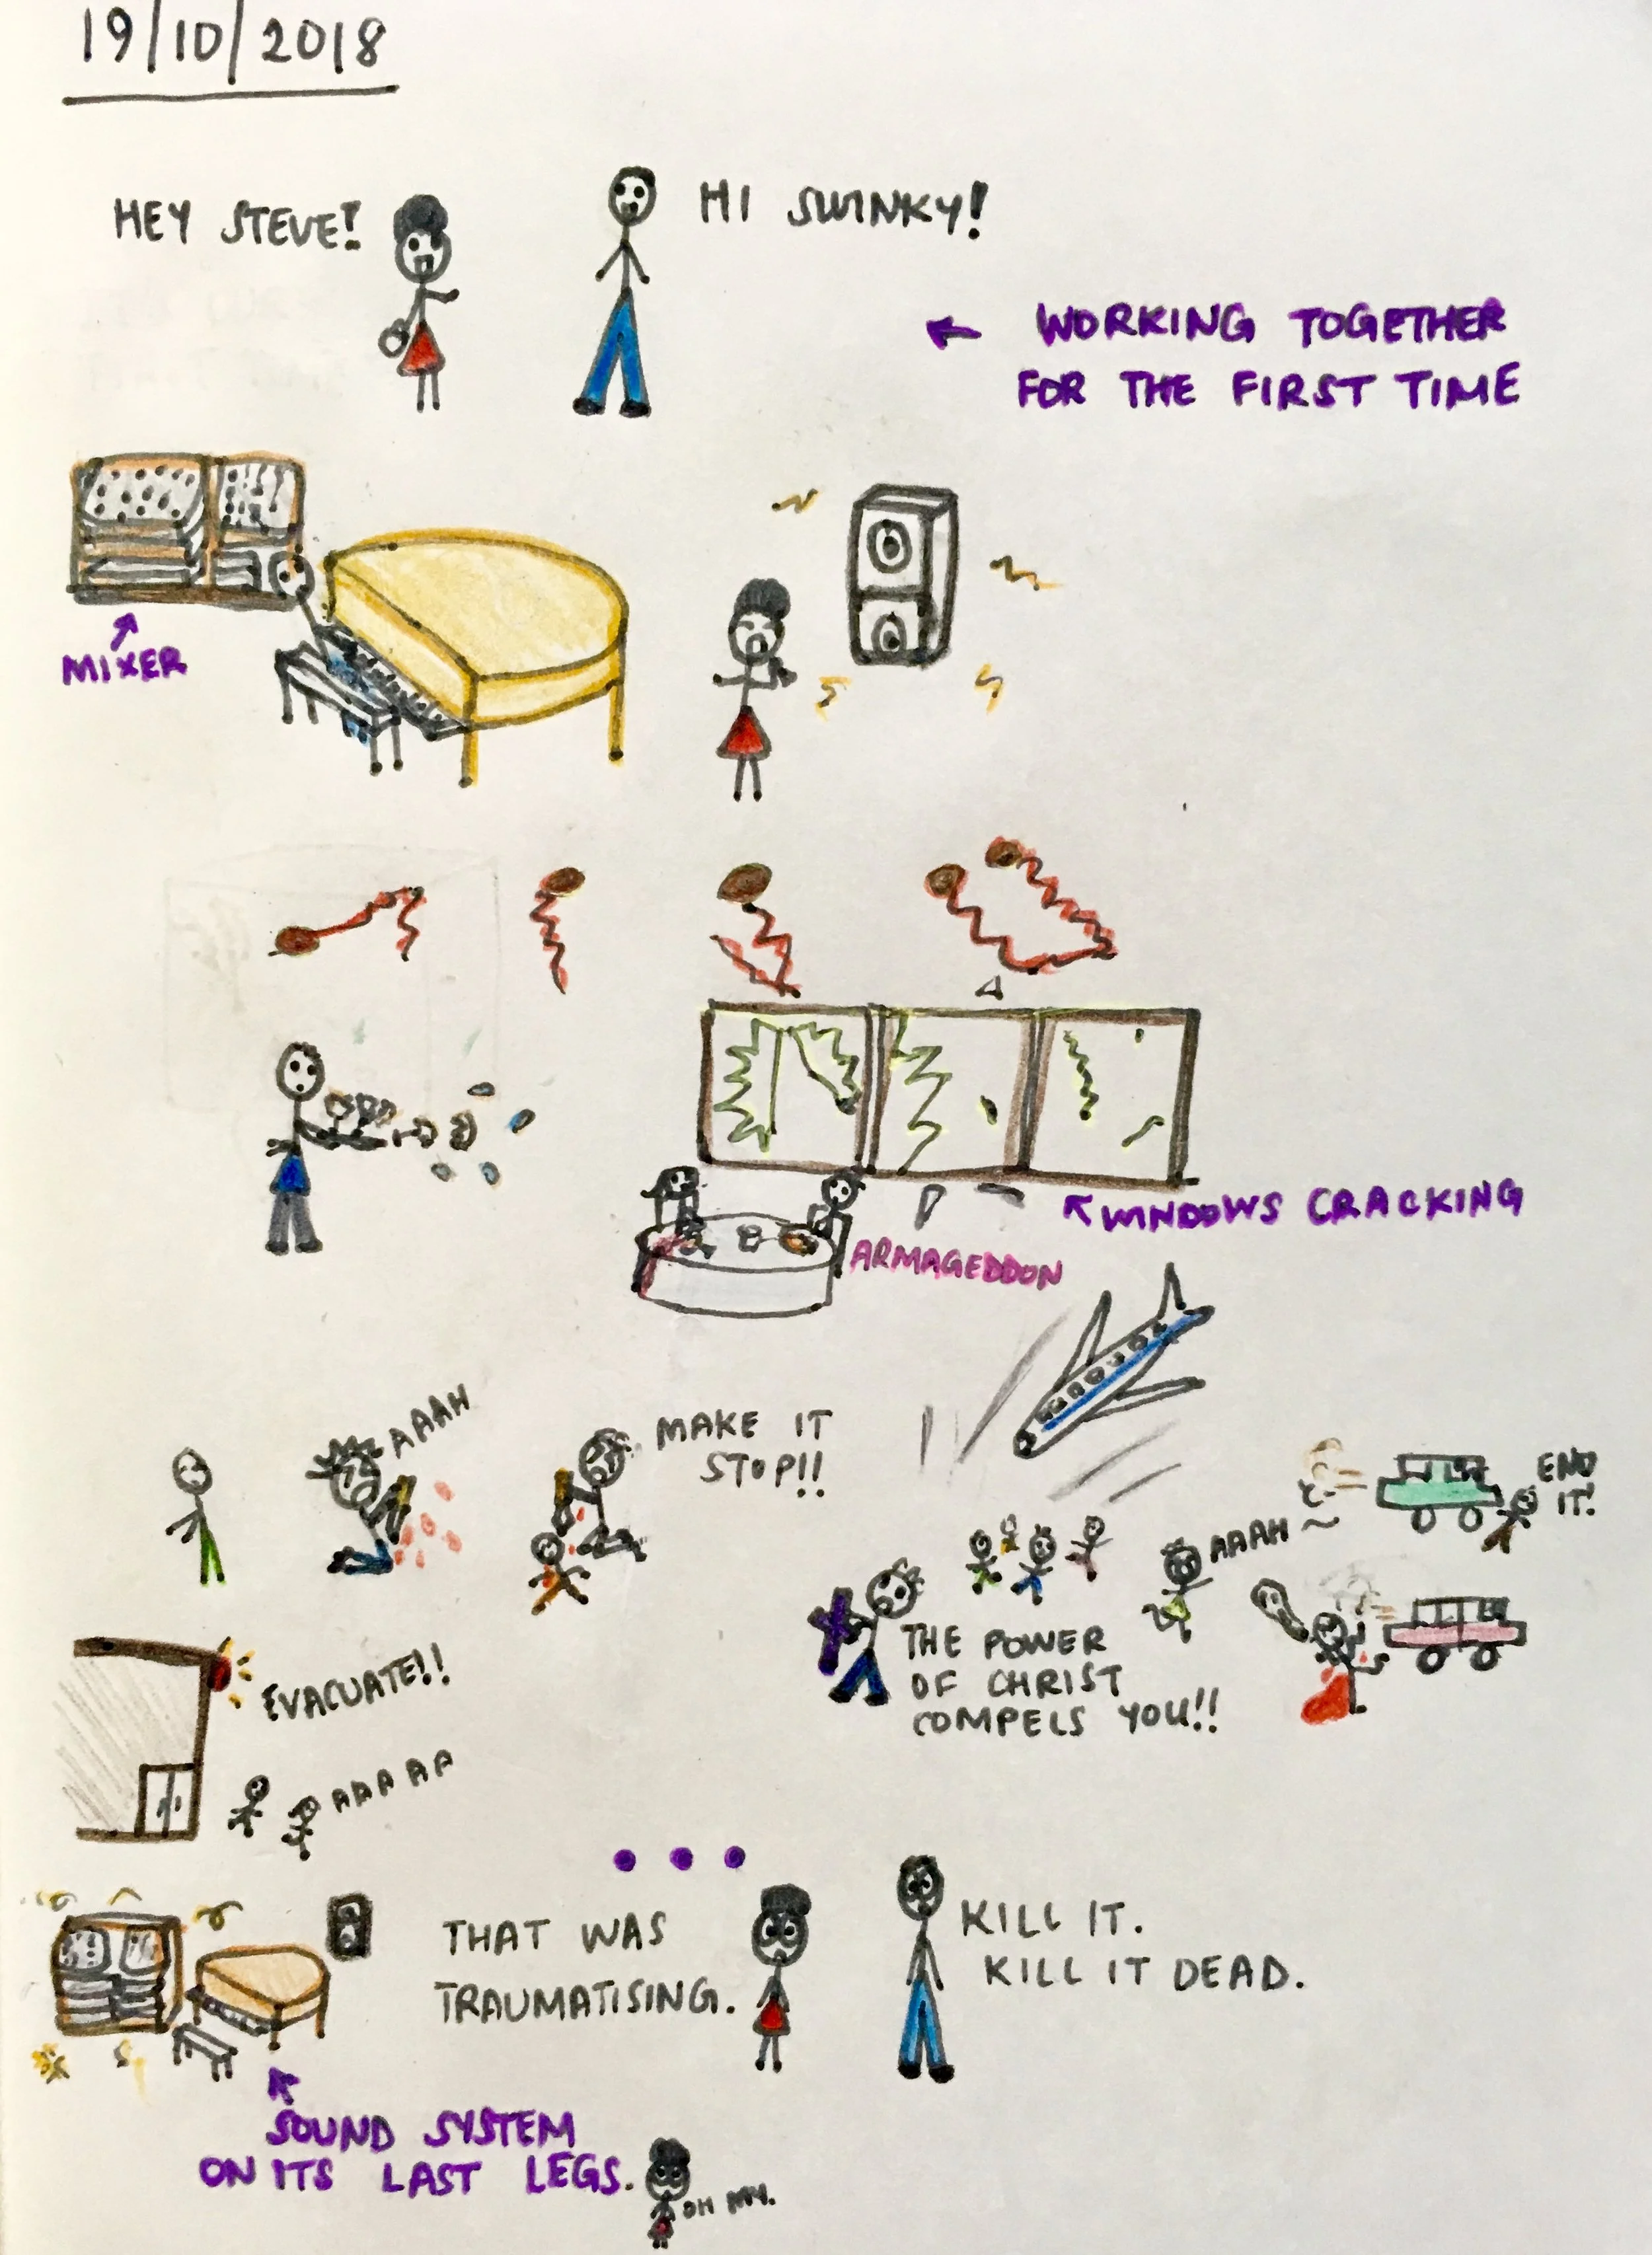 19/10/2018
HEY STEVE!
HI SWINKY!
← WORKING TOGETHER
FOR THE FIRST TIME
MIXER
WINDOWS CRACKING
ARMAGEDDON
AAAH
MAKE IT
STOP!!
END
IT!
AAAH
THE POWER
OF CHRIST
COMPELS YOU!!
EVACUATE!!
AAAAA
...
THAT WAS
TRAUMATISING.
KILL IT.
KILL IT DEAD.
SOUND SYSTEM
ON ITS LAST LEGS.
OH MY.